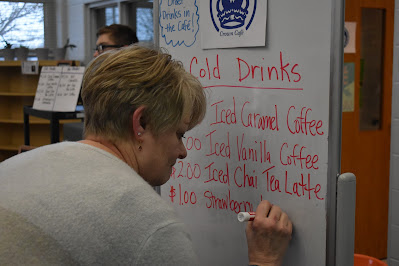 Order
Drinks in
the Café!
Crown Café
Cold Drinks
Iced Caramel Coffee
00 Iced Vanilla Coffee
200 Iced Chai Tea Latte
$1.00 Strawberry